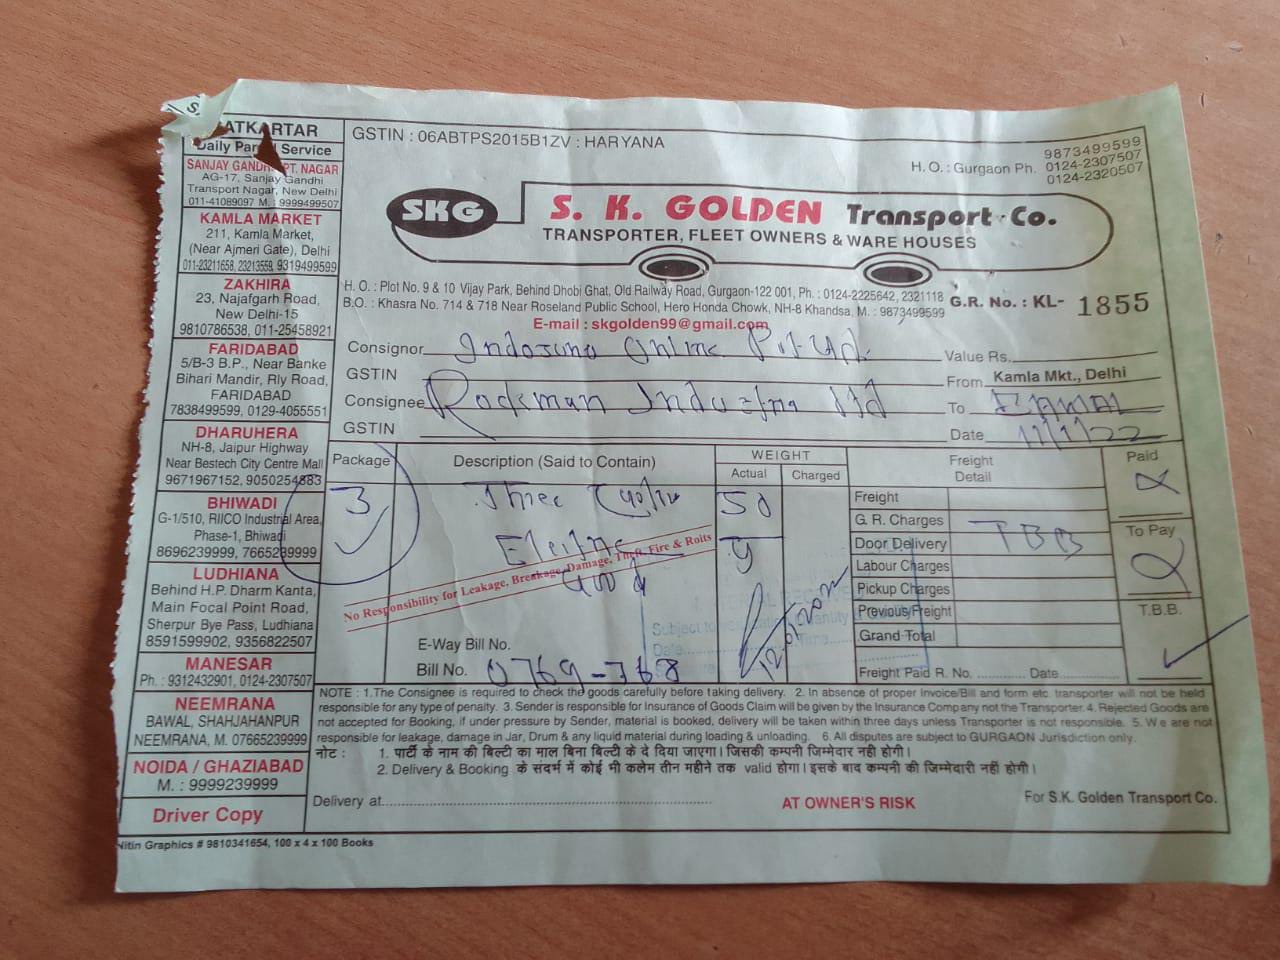 ATKARTAR
Daily Par Service
SANJAY GANDHI PT. NAGAR
AG-17, Sanjay Gandhi
Transport Nagar, New Delhi
011-41089097 M. : 9999499507
KAMLA MARKET
211, Kamla Market,
(Near Ajmeri Gate), Delhi
011-23211658, 23213559, 9319499599
ZAKHIRA
23, Najafgarh Road,
New Delhi-15
9810786538, 011-25458921
FARIDABAD
5/B-3 B.P., Near Banke
Bihari Mandir, Rly Road,
FARIDABAD
7838499599, 0129-4055551
DHARUHERA
NH-8, Jaipur Highway
Near Bestech City Centre Mall
9671967152, 9050254883
BHIWADI
G-1/510, RIICO Industrial Area,
Phase-1, Bhiwadi
8696239999, 7665239999
LUDHIANA
Behind H.P. Dharm Kanta,
Main Focal Point Road,
Sherpur Bye Pass, Ludhiana
8591599902, 9356822507
MANESAR
Ph. : 9312432901, 0124-2307507
NEEMRANA
BAWAL, SHAHJAHANPUR
NEEMRANA, M. 07665239999
NOIDA / GHAZIABAD
M. : 9999239999
Driver Copy
GSTIN : 06ABTPS2015B1ZV : HARYANA
9873499599
H.O. : Gurgaon Ph. 0124-2307507
0124-2320507
SKG
S. K. GOLDEN Transport Co.
TRANSPORTER, FLEET OWNERS & WARE HOUSES
H. O. : Plot No. 9 & 10 Vijay Park, Behind Dhobi Ghat, Old Railway Road, Gurgaon-122 001, Ph. : 0124-2225642, 2321118
B.O. : Khasra No. 714 & 718 Near Roseland Public School, Hero Honda Chowk, NH-8 Khandsa, M. : 9873499599
G.R. No. : KL- 1855
E-mail : skgolden99@gmail.com
Consignor Online Value Rs.
GSTIN From Kamla Mkt., Delhi
Consignee Rockman Ltd To
GSTIN Date 11/1/22
Package Description (Said to Contain) WEIGHT Freight Detail Paid
Actual Charged
3 Three 50 Freight
G. R. Charges TBB
Door Delivery To Pay
Labour Charges
No Responsibility for Leakage, Breakage, Damage, Theft, Fire & Roits
Pickup Charges
Previous Freight T.B.B.
Subject to
Date
Time
E-Way Bill No. Grand Total
Bill No. 0769-768 Freight Paid R. No. Date
NOTE : 1.The Consignee is required to check the goods carefully before taking delivery. 2. In absence of proper invoice/Bill and form etc transporter will not be held
responsible for any type of penality. 3. Sender is responsible for Insurance of Goods Claim will be given by the Insurance Company not the Transporter. 4. Rejected Goods are
not accepted for Booking, if under pressure by Sender, material is booked, delivery will be taken within three days unless Transporter is not responsible. 5. We are not
responsible for leakage, damage in Jar, Drum & any liquid material during loading & unloading. 6. All disputes are subject to GURGAON Jurisdiction only.
नोट : 1. पार्टी के नाम की बिल्टी का माल बिना बिल्टी के दे दिया जाएगा। जिसकी कम्पनी जिम्मेदार नही होगी।
2. Delivery & Booking के संदर्भ में कोई भी कलेम तीन महीने तक valid होगा। इसके बाद कम्पनी की जिम्मेदारी नहीं होगी।
Delivery at AT OWNER'S RISK For S.K. Golden Transport Co.
Nitin Graphics # 9810341654, 100 x 4 x 100 Books